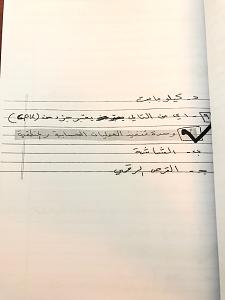 د- كيلو بايت
٩- أي من التالي يعتبر جزء من (CPU)
وحدة تنفيذ العمليات الحسابية والمنطقية
ب- الشاشة
ج- القرص الرقمي